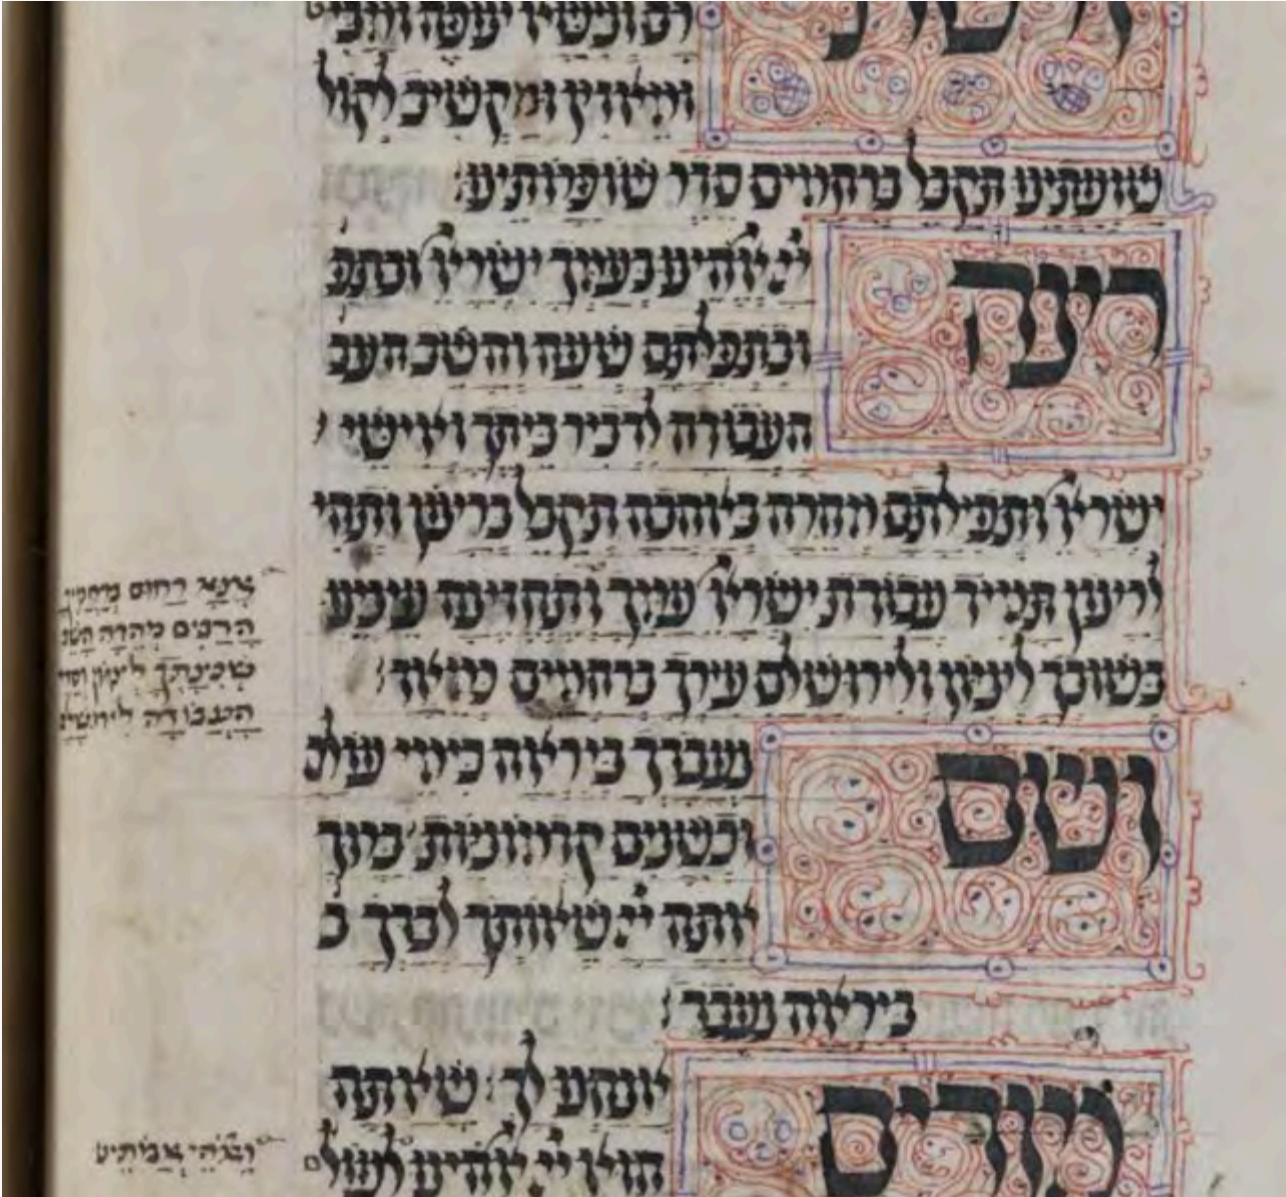 ומאזין ומקשיב לקול
שועתינו תקבל ברחמים סדר שופרותינו:
רצה
יי׳ אלהינו בעמך ישראל ובתפ
ובתפילתם שועה והשב העב
העבודה לדביר ביתך ואישי
ישראל ותפילתם מהרה באהבה תקבל ברצון ותהי
לרצון תמיד עבודת ישראל עמך ותחזינה עינינו
בשובך לציון ולירושלם עירך ברחמים כמאז:
אנא רחום ברחמיך
הרבים
שכינתך לציון וסדר
העבודה לירושלים
ושם
נעבדך ביראה כימי עולם
וכשנים קדמוניות: ברוך
אתה יי׳ שאותך לבדך ב
ביראה נעבד:
מודים
אנחנו לך: שאתה
הוא יי׳ אלהינו
ואלהי אבותינו